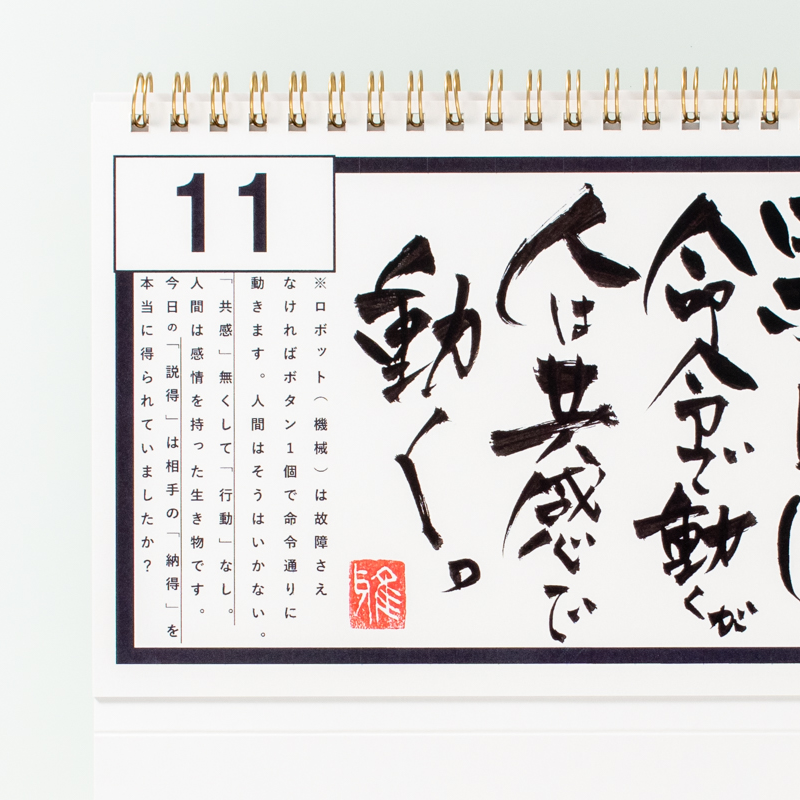 11
命令で動くが
人は共感で
動く。
※ロボット（機械）は故障さえ
なければボタン1個で命令通りに
動きます。人間はそうはいかない。
「共感」無くして「行動」なし。
人間は感情を持った生き物です。
今日の「説得」は相手の「納得」を
本当に得られていましたか？